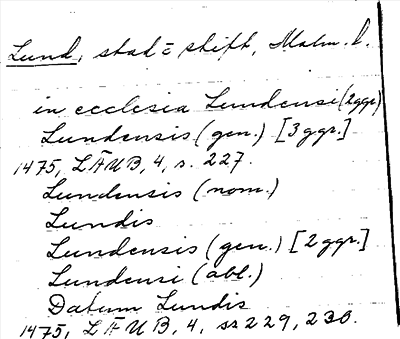 Lund, stad = stift, Malm. l.
in ecclesia Lundensi (2 ggr)
Lundensis (gen.) [3 ggr.]
1475, LÄUB, 4, s. 227.
Lundensis (nom.)
Lundis
Lundensis (gen.) [2 ggr.]
Lundensi (abl.)
Datum Lundis
1475, LÄUB, 4, ss 229, 230.